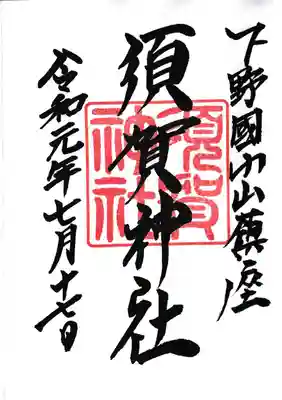 下野國小山鎮座
須賀神社
須賀神社
令和元年七月十七日